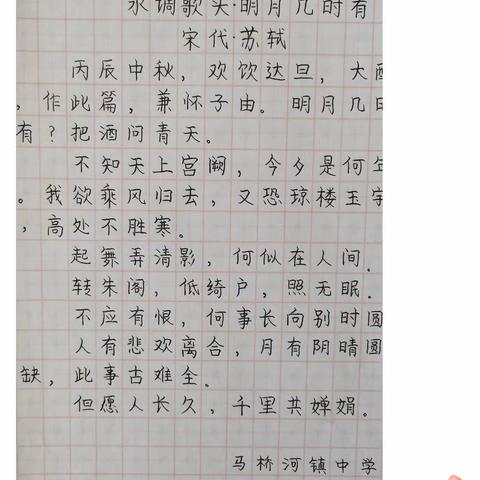 水调歌头·明月几时有
宋代·苏轼
丙辰中秋，欢饮达旦，大醉
，作此篇，兼怀子由。明月几时
有？把酒问青天。
不知天上宫阙，今夕是何年
。我欲乘风归去，又恐琼楼玉宇
，高处不胜寒。
起舞弄清影，何似在人间.
转朱阁，低绮户，照无眠.
不应有恨，何事长向别时圆
人有悲欢离合，月有阴晴圆
缺，此事古难全。
但愿人长久，千里共婵娟。
马桥河镇中学